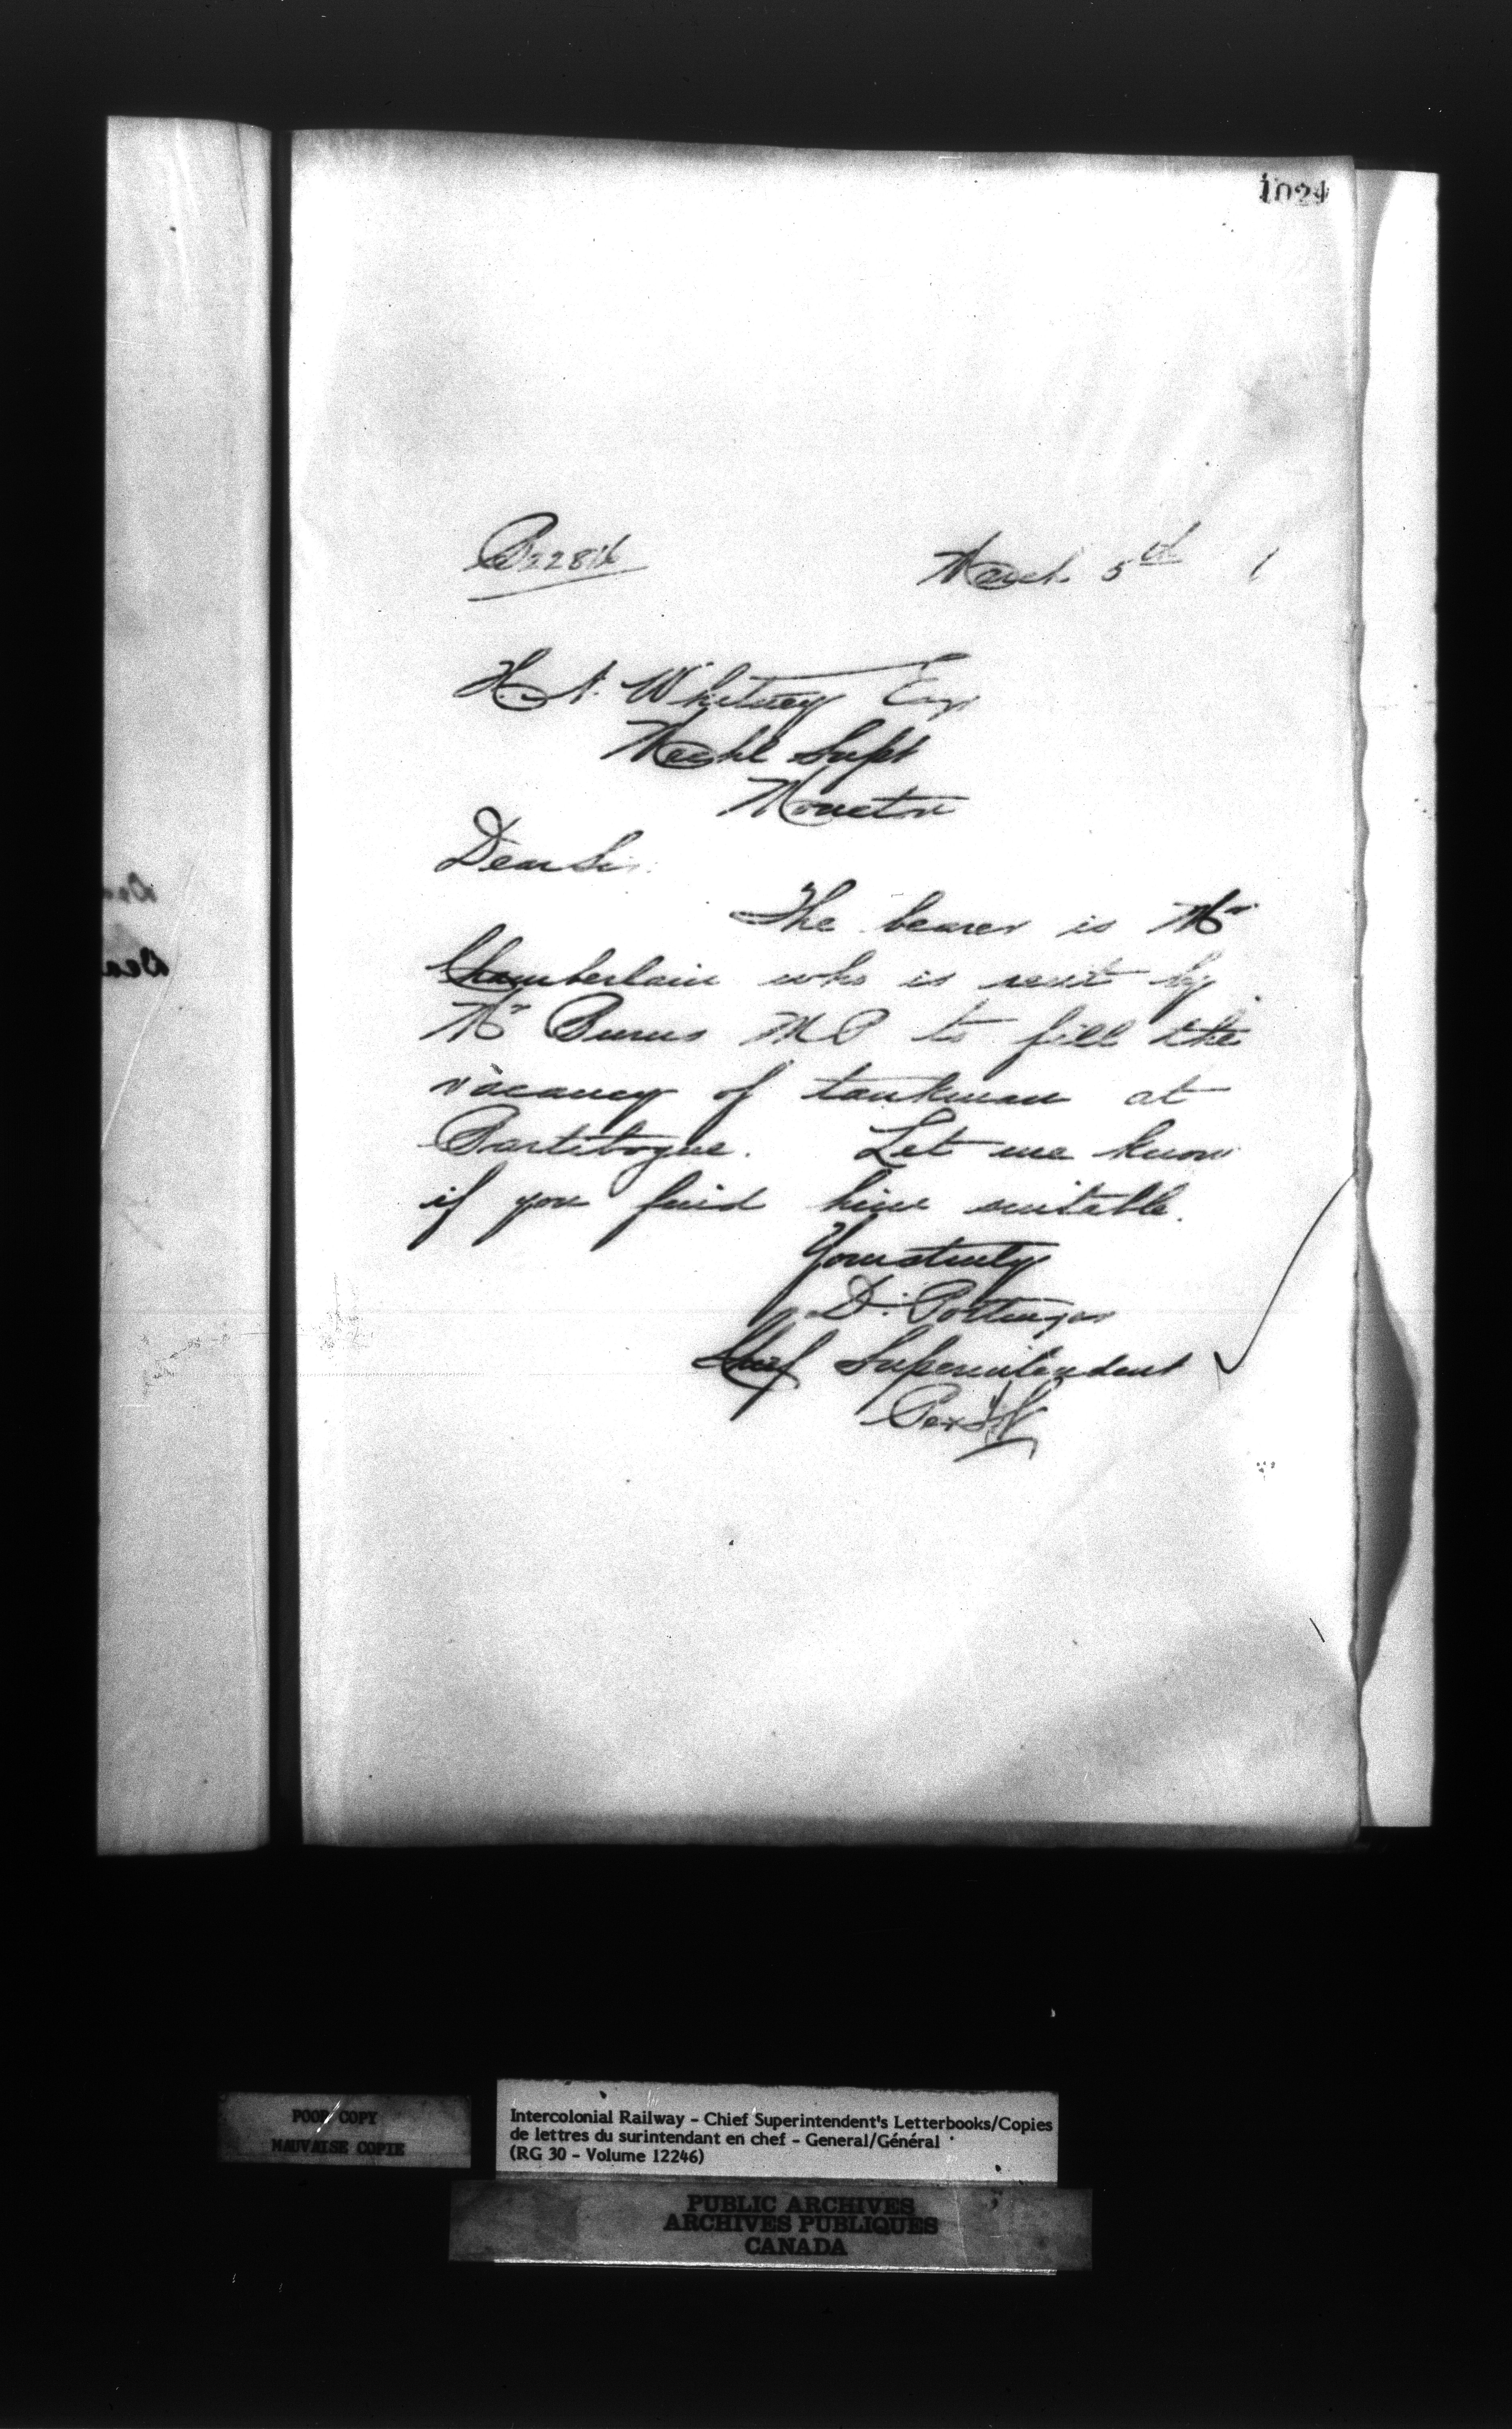 1024
March 5th 1
H. A. Whitney Esq
Mechl Supt
Moncton
Dear Sir.
The bearer is Mr
Chamberlain who is sent by
Mr Burns M P to fill the
vacancy of tankman at
Bartibogue. Let me know
if you find him suitable.
Yours truly
D. Pottinger
Chief Superintendent
Per
POOR COPY
MAUVAISE COPIE
Intercolonial Railway - Chief Superintendent's Letterbooks/Copies
de lettres du surintendant en chef - General/Général
(RG 30 - Volume 12246)
PUBLIC ARCHIVES
ARCHIVES PUBLIQUES
CANADA